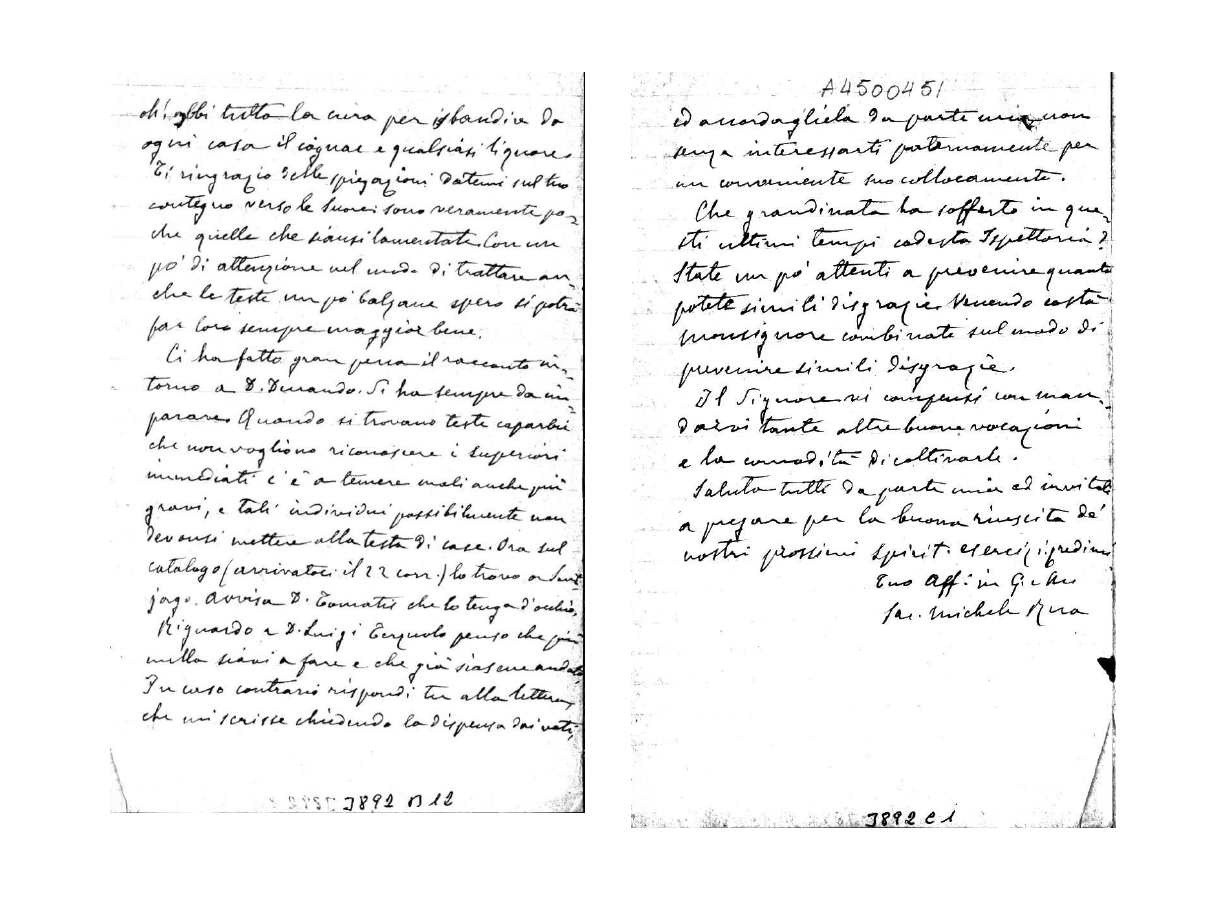 oh! abbi tutta la cura per isbandire da
ogni casa il cognac e qualsiasi liquore.
Ti ringrazio delle spiegazioni datemi sul tuo
contegno verso le Suore: sono veramente po-
che quelle che siansi lamentate. Con un
po' di attenzione nel modo di trattare an-
che le teste un po' balzane spero si potrà
far loro sempre maggior bene.
Ci ha fatto gran pena il racconto in-
torno a D. Durando. Si ha sempre da im-
parare. Quando si trovano teste caparbie
che non vogliono riconoscere i superiori
immediati c'è a temere mali anche più
gravi, e tali individui possibilmente non
devonsi mettere alla testa di case. Ora sul
catalogo (arrivatoci il 22 corr.) lo trovo a Sant-
jago. Avvisa D. Tomatis che lo tenga d'occhio.
Riguardo a D. Luigi penso che più
nulla siavi a fare e che già siasene andato.
In caso contrario rispondi tu alla lettera,
che mi scrisse chiedendo la dispensa dai voti,
J892 B 12
A4500451
ed accordagliela da parte mia, non
senza interessarti paternamente per
un conveniente suo collocamente.
Che grandinata ha sofferto in que-
sti ultimi tempi codesta Ispettoria!
State un po' attenti a prevenire quanto
potete simili disgrazie. Venendo costà
monsignore combinate sul modo di
prevenire simili disgrazie.
Il Signore vi compensi con man-
darvi tante altre buone vocazioni
e la comodità di coltivarle.
Saluta tutti da parte mia ed invitali
a pregare per la buona riuscita de'
nostri prossimi spirit. esercizi
Tuo Aff. in G. e M.
Sac. Michele Rua
J892 C 1